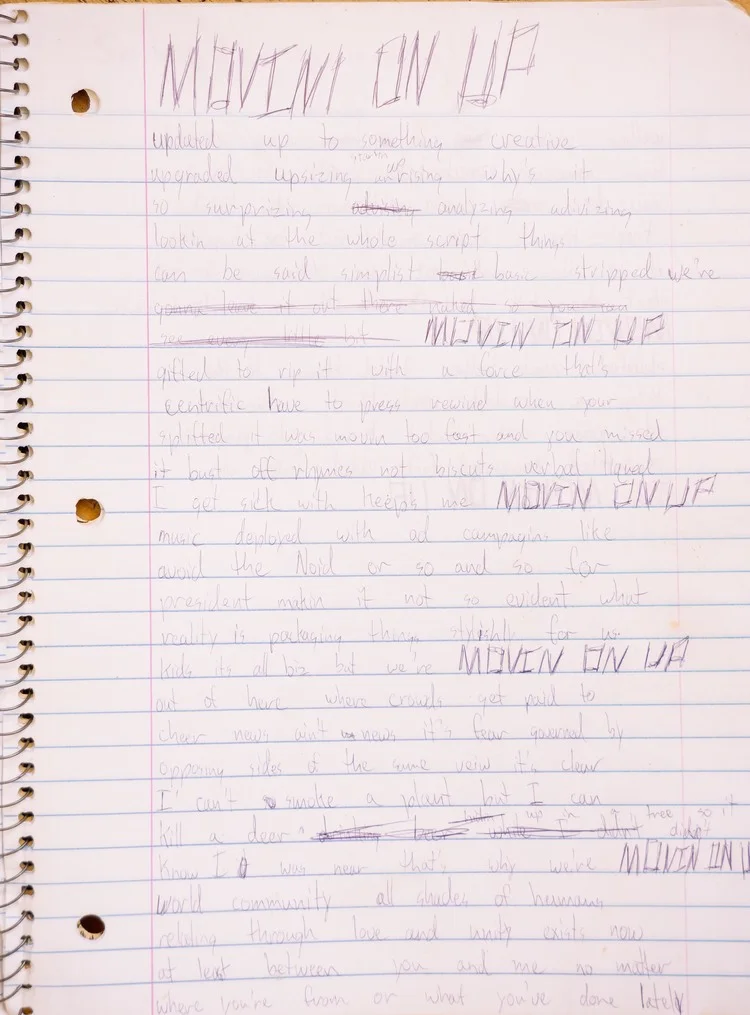 MOVINI ON UP
updated up to something creative
upgraded upsizing uprising why's it
so surprizing analyzing advizing
lookin at the whole script things
can be said simplist basic stripped we're
gonna have it out there naked so you can
see every little bit MOVIN ON UP
gifted to rip it with a force that's
centrific have to press rewind when your
splifted it was movin too fast and you missed
it bust off rhymes not biscuts verbal liqued
I get sick with keeps me MOVIN ON UP
music deployed with ad campagins like
avoid the Noid or so and so for
president makin it not so evident what
reality is packaging things stylishly for us
kids its all biz but we're MOVIN ON UP
out of here where crowds get paid to
cheer news ain't news it's fear governed by
opposing sides of the same veiw it's clear
I can't smoke a plant but I can
kill a deer hidin up in a tree so it didn't
know I was near that's why we're MOVIN ON U
world community all shades of humans
relating through love and unity exists now
at least between you and me no matter
where you're from or what you've done lately